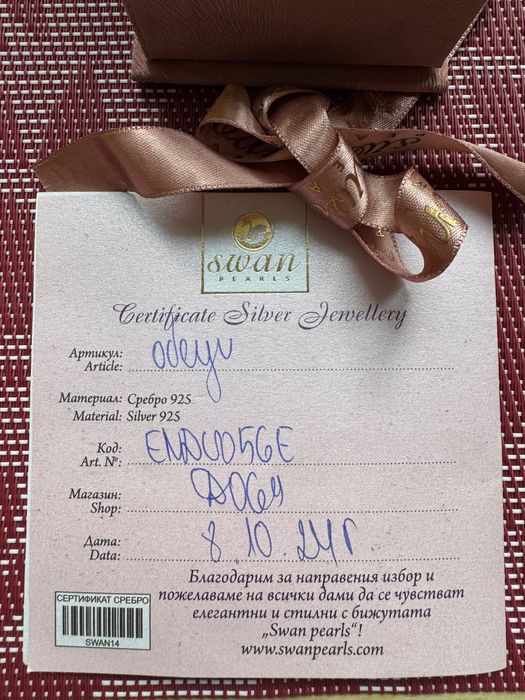 swan
PEARLS
Certificate Silver Jewellery
Артикул: обеци
Article:
Материал: Сребро 925
Material: Silver 925
Код:
Art. №:
Магазин:
Shop:
Дата: 8.10.24г
Data:
Благодарим за направения избор и
пожелаваме на всички дами да се чувстват
елегантни и стилни с бижутата
„Swan pearls“!
www.swanpearls.com
СЕРТИФИКАТ СРЕБРО
SWAN14